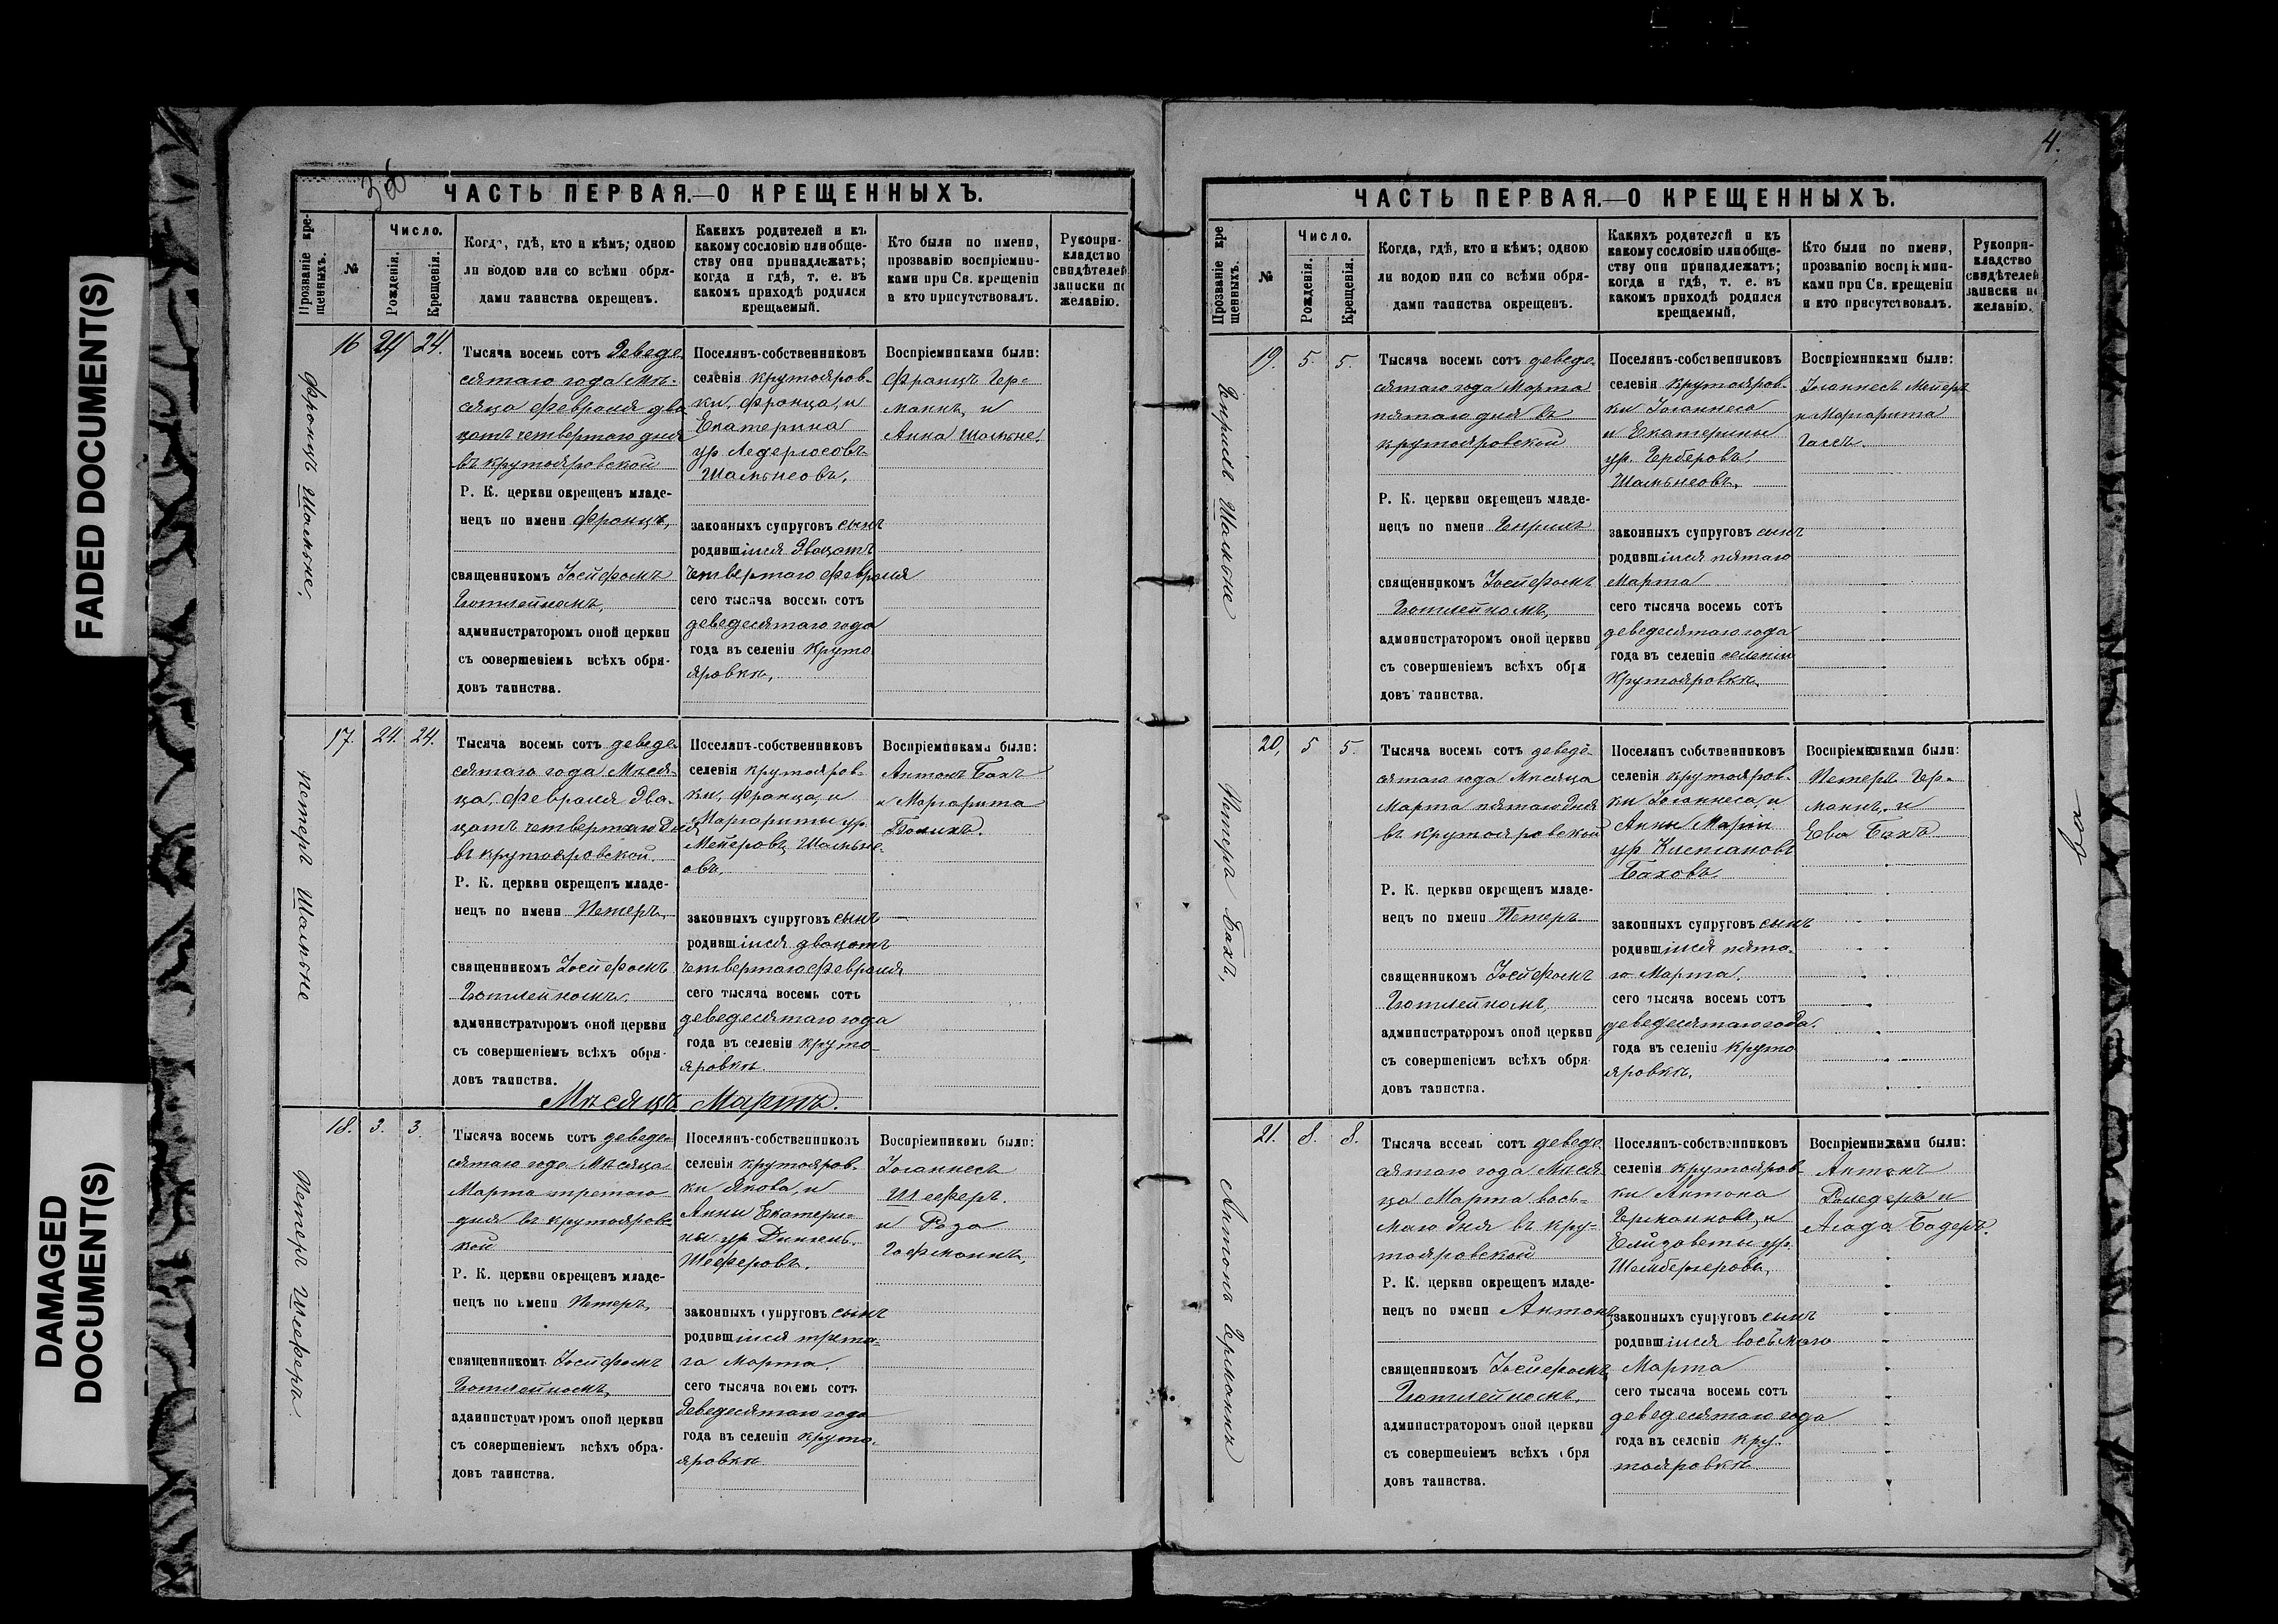 FADED DOCUMENT(S)
DAMAGED
DOCUMENT(S)
ЧАСТЬ ПЕРВАЯ.—О КРЕЩЕННЫХЪ.
Прозваніе кре-
щенныхъ.
№
Число.
Рожденія.
Крещенія.
Когда, гдѣ, кто и кѣмъ; одною
ли водою или со всѣми обря-
дами таинства окрещенъ.
Какихъ родителей и къ
какому сословію или обще-
ству они принадлежатъ;
когда и гдѣ, т. е. въ
какомъ приходѣ родился
крещаемый.
Кто были по имени,
прозванію воспріемни-
ками при Св. крещеніи
и кто присутствовалъ.
Рукопри-
кладство
свидѣтелей
записки по
желанію.
Францъ Шальне,
16 24 24.
Тысяча восемь сотъ деведе-
сятаго года мѣ-
сяца Февраля два
цать четвертаго дня
въ крутояровской
Р. К. церкви окрещенъ младе-
нецъ по имени Францъ,
священникомъ Іосифомъ
администраторомъ оной церкви
съ совершеніемъ всѣхъ обря-
довъ таинства.
Поселянъ-собственниковъ
селенія крутояров-
ки, Франца, и
Екатерина
ур.
Шальнеовъ,
законныхъ супруговъ сынъ
родившійся двацать
четвертаго Февраля
сего тысяча восемь сотъ
деведесятаго года
года въ селеніи Круто
яровкѣ,
Воспріемниками были:
Францъ Гер-
маннъ, и
Анна Шальне.
Петеръ Шальне
17. 24. 24.
Тысяча восемь сотъ деведе-
сятаго года Мѣся-
ца, Февраля два-
цать четвертаго дня
въ крутояровской
Р. К. церкви окрещенъ младе-
нецъ по имени Петеръ,
священникомъ Іосифомъ
администраторомъ оной церкви
съ совершеніемъ всѣхъ обря-
довъ таинства.
Поселянъ-собственниковъ
селенія крутояров-
ки, Франца, и
Маргариты ур.
Мейеровъ Шальне-
овъ,
законныхъ супруговъ сынъ
родившійся двацать
четвертаго Февраля
сего тысяча восемь сотъ
деведесятаго года
года въ селеніи круто-
яровкѣ.
Воспріемниками были:
Антонъ Бахъ
и Маргарита
Мѣсяцъ Мартъ.
Петеръ Шеферъ
18. 3. 3.
Тысяча восемь сотъ деведе-
сятаго года Мѣсяца
Марта третаго
дня въ крутояровс-
кой
Р. К. церкви окрещенъ младе-
нецъ по имени Петеръ,
священникомъ Іосифомъ
администраторомъ оной церкви
съ совершеніемъ всѣхъ обря-
довъ таинства.
Поселянъ-собственниковъ
селенія крутояров-
ки Якова, и
Анны Екатери-
ны ур.
Шеферовъ.
законныхъ супруговъ сынъ
родившійся трета-
го Марта.
сего тысяча восемь сотъ
деведесятаго года
года въ селеніи круто-
яровкѣ
Воспріемниками были:
Іоаннесъ
Шеферъ,
и Роза
Гофманнъ,
4.
ЧАСТЬ ПЕРВАЯ.—О КРЕЩЕННЫХЪ.
Прозваніе кре
щенныхъ.
№
Число.
Рожденія.
Крещенія.
Когда, гдѣ, кто и кѣмъ; одною
ли водою или со всѣми обря-
дами таинства окрещенъ.
Какихъ родителей и къ
какому сословію или обще-
ству они принадлежатъ;
когда и гдѣ, т. е. въ
какомъ приходѣ родился
крещаемый.
Кто были по имени,
прозванію воспріемни-
ками при Св. крещеніи
и кто присутствовалъ.
Рукопри-
кладство
свидѣтелей
записки по
желанію.
Генрихъ Шальне
19. 5. 5.
Тысяча восемь сотъ деведе-
сятаго года Марта
пятаго дня въ
крутояровской
Р. К. церкви окрещенъ младе-
нецъ по имени Генрихъ
священникомъ Іосифомъ
администраторомъ оной церкви
съ совершеніемъ всѣхъ обря
довъ таинства.
Поселянъ-собственниковъ
селенія крутояров-
ки Іоаннеса
и Екатерины
ур. Герберовъ,
Шальнеовъ,
законныхъ супруговъ сынъ
родившійся пятаго
Марта
сего тысяча восемь сотъ
деведесятаго года
года въ селеніи селеніи
Крутояровкѣ,
Воспріемниками были:
Іоаннесъ Мейеръ
и Маргарита
Гассъ.
Петеръ Бахъ,
20, 5 5.
Тысяча восемь сотъ деведе-
сятаго года Мѣсяца
Марта пятаго дня
въ крутояровской
Р. К. церкви окрещенъ младе-
нецъ по имени Петеръ
священникомъ Іосифомъ
администраторомъ оной церкви
съ совершеніемъ всѣхъ обря
довъ таинства.
Поселянъ собственниковъ
селенія крутояров-
ки Іоаннеса, и
Анны Маріи
ур
Баховъ,
законныхъ супруговъ сынъ
родившійся пята-
го Марта,
сего тысяча восемь сотъ
деведесятаго года.
года въ селеніи круто
яровкѣ,
Воспріемниками были:
Петеръ Гер-
маннъ, и
Ева Бахъ
Антонъ Германнъ
21. 8. 8.
Тысяча восемь сотъ деведе-
сятаго года Мѣся-
ца Марта вось-
маго дня въ кру-
тояровской
Р. К. церкви окрещенъ младе-
нецъ по имени Антонъ,
священникомъ Іосифомъ
администраторомъ оной церкви
съ совершеніемъ всѣхъ обря
довъ таинства.
Поселянъ-собственниковъ
селенія Крутояров-
ки Антона
Германновъ, и
Елизоветы ур.
законныхъ супруговъ сынъ
родившійся восьмаго
Марта
сего тысяча восемь сотъ
деведесятаго года
года въ селеніи кру-
тояровкѣ
Воспріемниками были:
Антонъ
Агада Бадеръ.